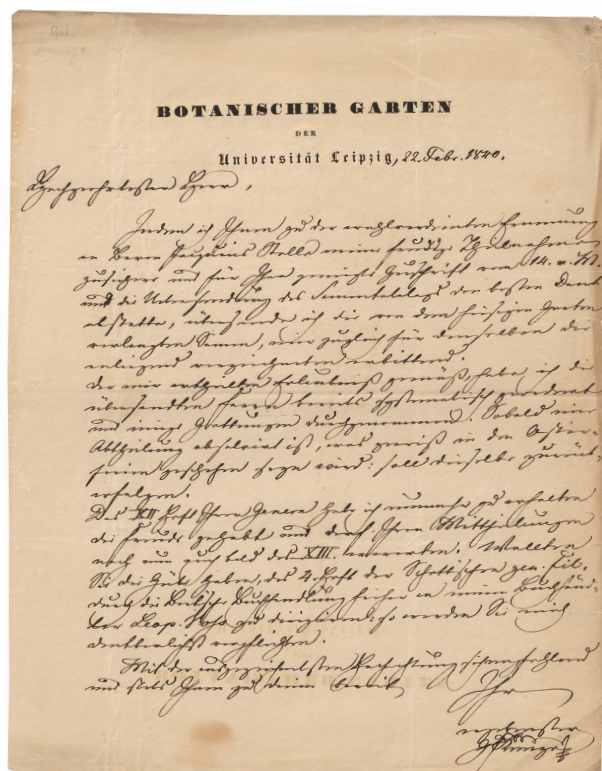 BOTANISCHER GARTEN
DER
Universität Leipzig, 22. Febr. 1840.
Hochgeehrtester Herr,
Indem ich Ihnen zu der wohlverdienten Ernennung
an Baron Jacquins Stelle meine freudige Theilnahme
zusichere und für Ihre geneigte Zuschrift vom 14. v. M.
und die Uebersendung des Samenkatalogs den besten Dank
abstatte, übersende ich die von dem hiesigen Garten
verlangten Samen, mir zugleich für denselben die
anliegend verzeichneten erbittend.
Der mir ertheilten Erlaubniß gemäß habe ich die
übersendten Farrn bereits systematisch geordnet
und einige Gattungen durchgenommen. Sobald eine
Abtheilung absolvirt ist, was gewiß in den Oster-
ferien geschehen seyn wird: soll dieselbe zurück-
erfolgen.
Das XII Heft Ihrer Genera habe ich nunmehr zu erhalten
die Freude gehabt und darf Ihren Mittheilungen
nach nun auch bald das XIII. erwarten. Wollten
Sie die Güte haben, das 4. Heft der Schottischen gen. Fil.
durch die Buchhandlung hieher an meinen Buchhänd-
ler Leop. Voß zu dirigiren: so werden Sie mich
dankbarlichst verpflichten.
Mit der ausgezeichnetsten Hochachtung sich empfehlend
und stets Ihnen zu dienen bereit
Ihr
ergebenster
GKunze